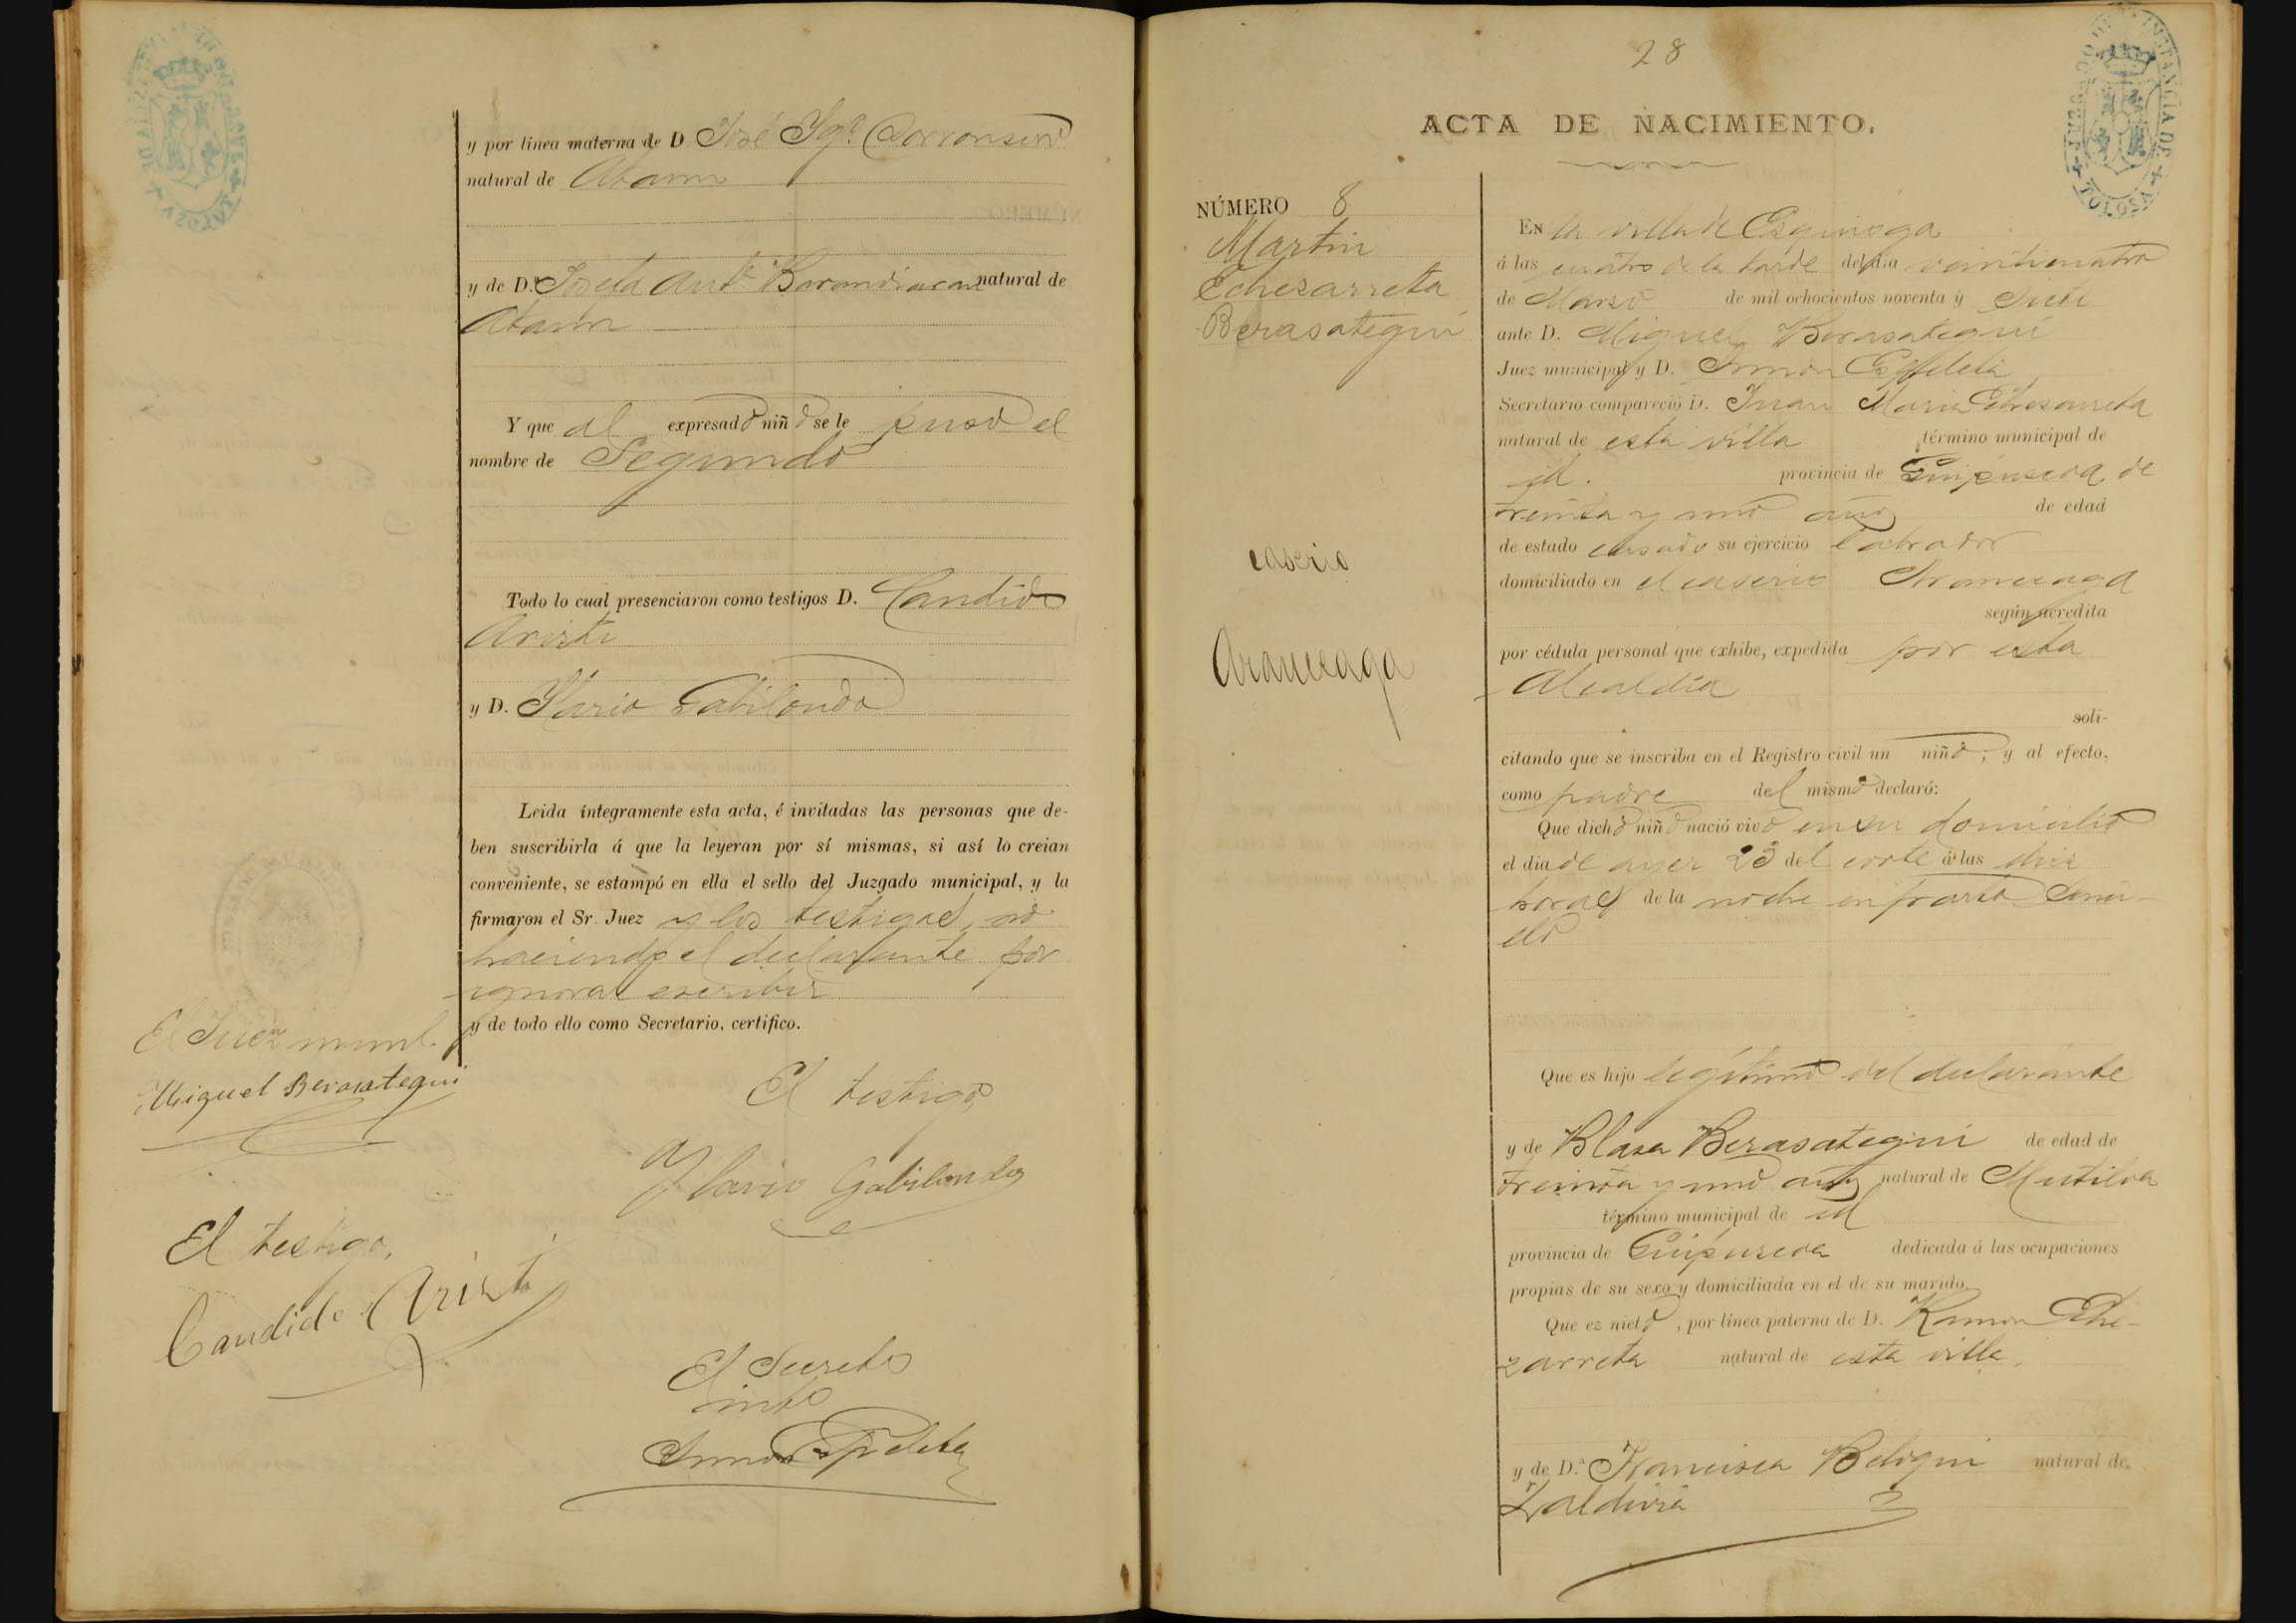 y por línea materna de D. José Igº Dorronsoro
natural de Ataun
y de D.ª Josefa Antª Barandiaran natural de
Ataun
Y que al expresado niño se le puso el
nombre de Segundo
Todo lo cual presenciaron como testigos D. Candido
Aristi
y D. Ylario Gabilondo
Leida íntegramente esta acta, é invitadas las personas que de-
ben suscribirla á que la leyeran por sí mismas, si así lo creian
conveniente, se estampó en ella el sello del Juzgado municipal, y la
firmaron el Sr. Juez y los testigos, no
haciendo el declarante por
ignorar escribir
y de todo ello como Secretario, certifico.
El Juez munl.
Miguel Berasategui
El testigo,
Ylario Gabilondo
El testigo,
Candido Aristi
El Secreto
into
Simon Ezpeleta
28
ACTA DE NACIMIENTO.
JUZGADO DE 1ª INSTANCIA DE TOLOSA
NÚMERO 8
Martin
Echezarreta
Berasategui
caserio
Aranceaga
En la villa de Ezquioga
á las cuatro de la tarde del dia veinticuatro
de Marzo de mil ochocientos noventa y siete
ante D. Miguel Berasategui
Juez municipal y D. Simon Ezpeleta
Secretario compareció D. Juan Maria Echezarreta
natural de esta villa término municipal de
id. provincia de Guipuzcoa de
treinta y uno años de edad
de estado casado su ejercicio labrador
domiciliado en el caserio Aranceaga
según acredita
por cédula personal que exhibe, expedida por esta
Alcaldia
soli-
citando que se inscriba en el Registro civil un niño; y al efecto,
como padre del mismo declaró:
Que dicho niño nació vivo en su domicilio
el dia de ayer 23 del corte á las diez
horas de la noche en parto senci-
llo
Que es hijo legítimo del declarante
y de Blasa Berasategui de edad de
treinta y uno años natural de Mutiloa
término municipal de id
provincia de Guipuzcoa dedicada á las ocupaciones
propias de su sexo y domiciliada en el de su marido.
Que ez nieto, por línea paterna de D. Ramon Eche-
zarreta natural de esta villa.
y de D.ª Francisca Beloqui natural de
Zaldivia